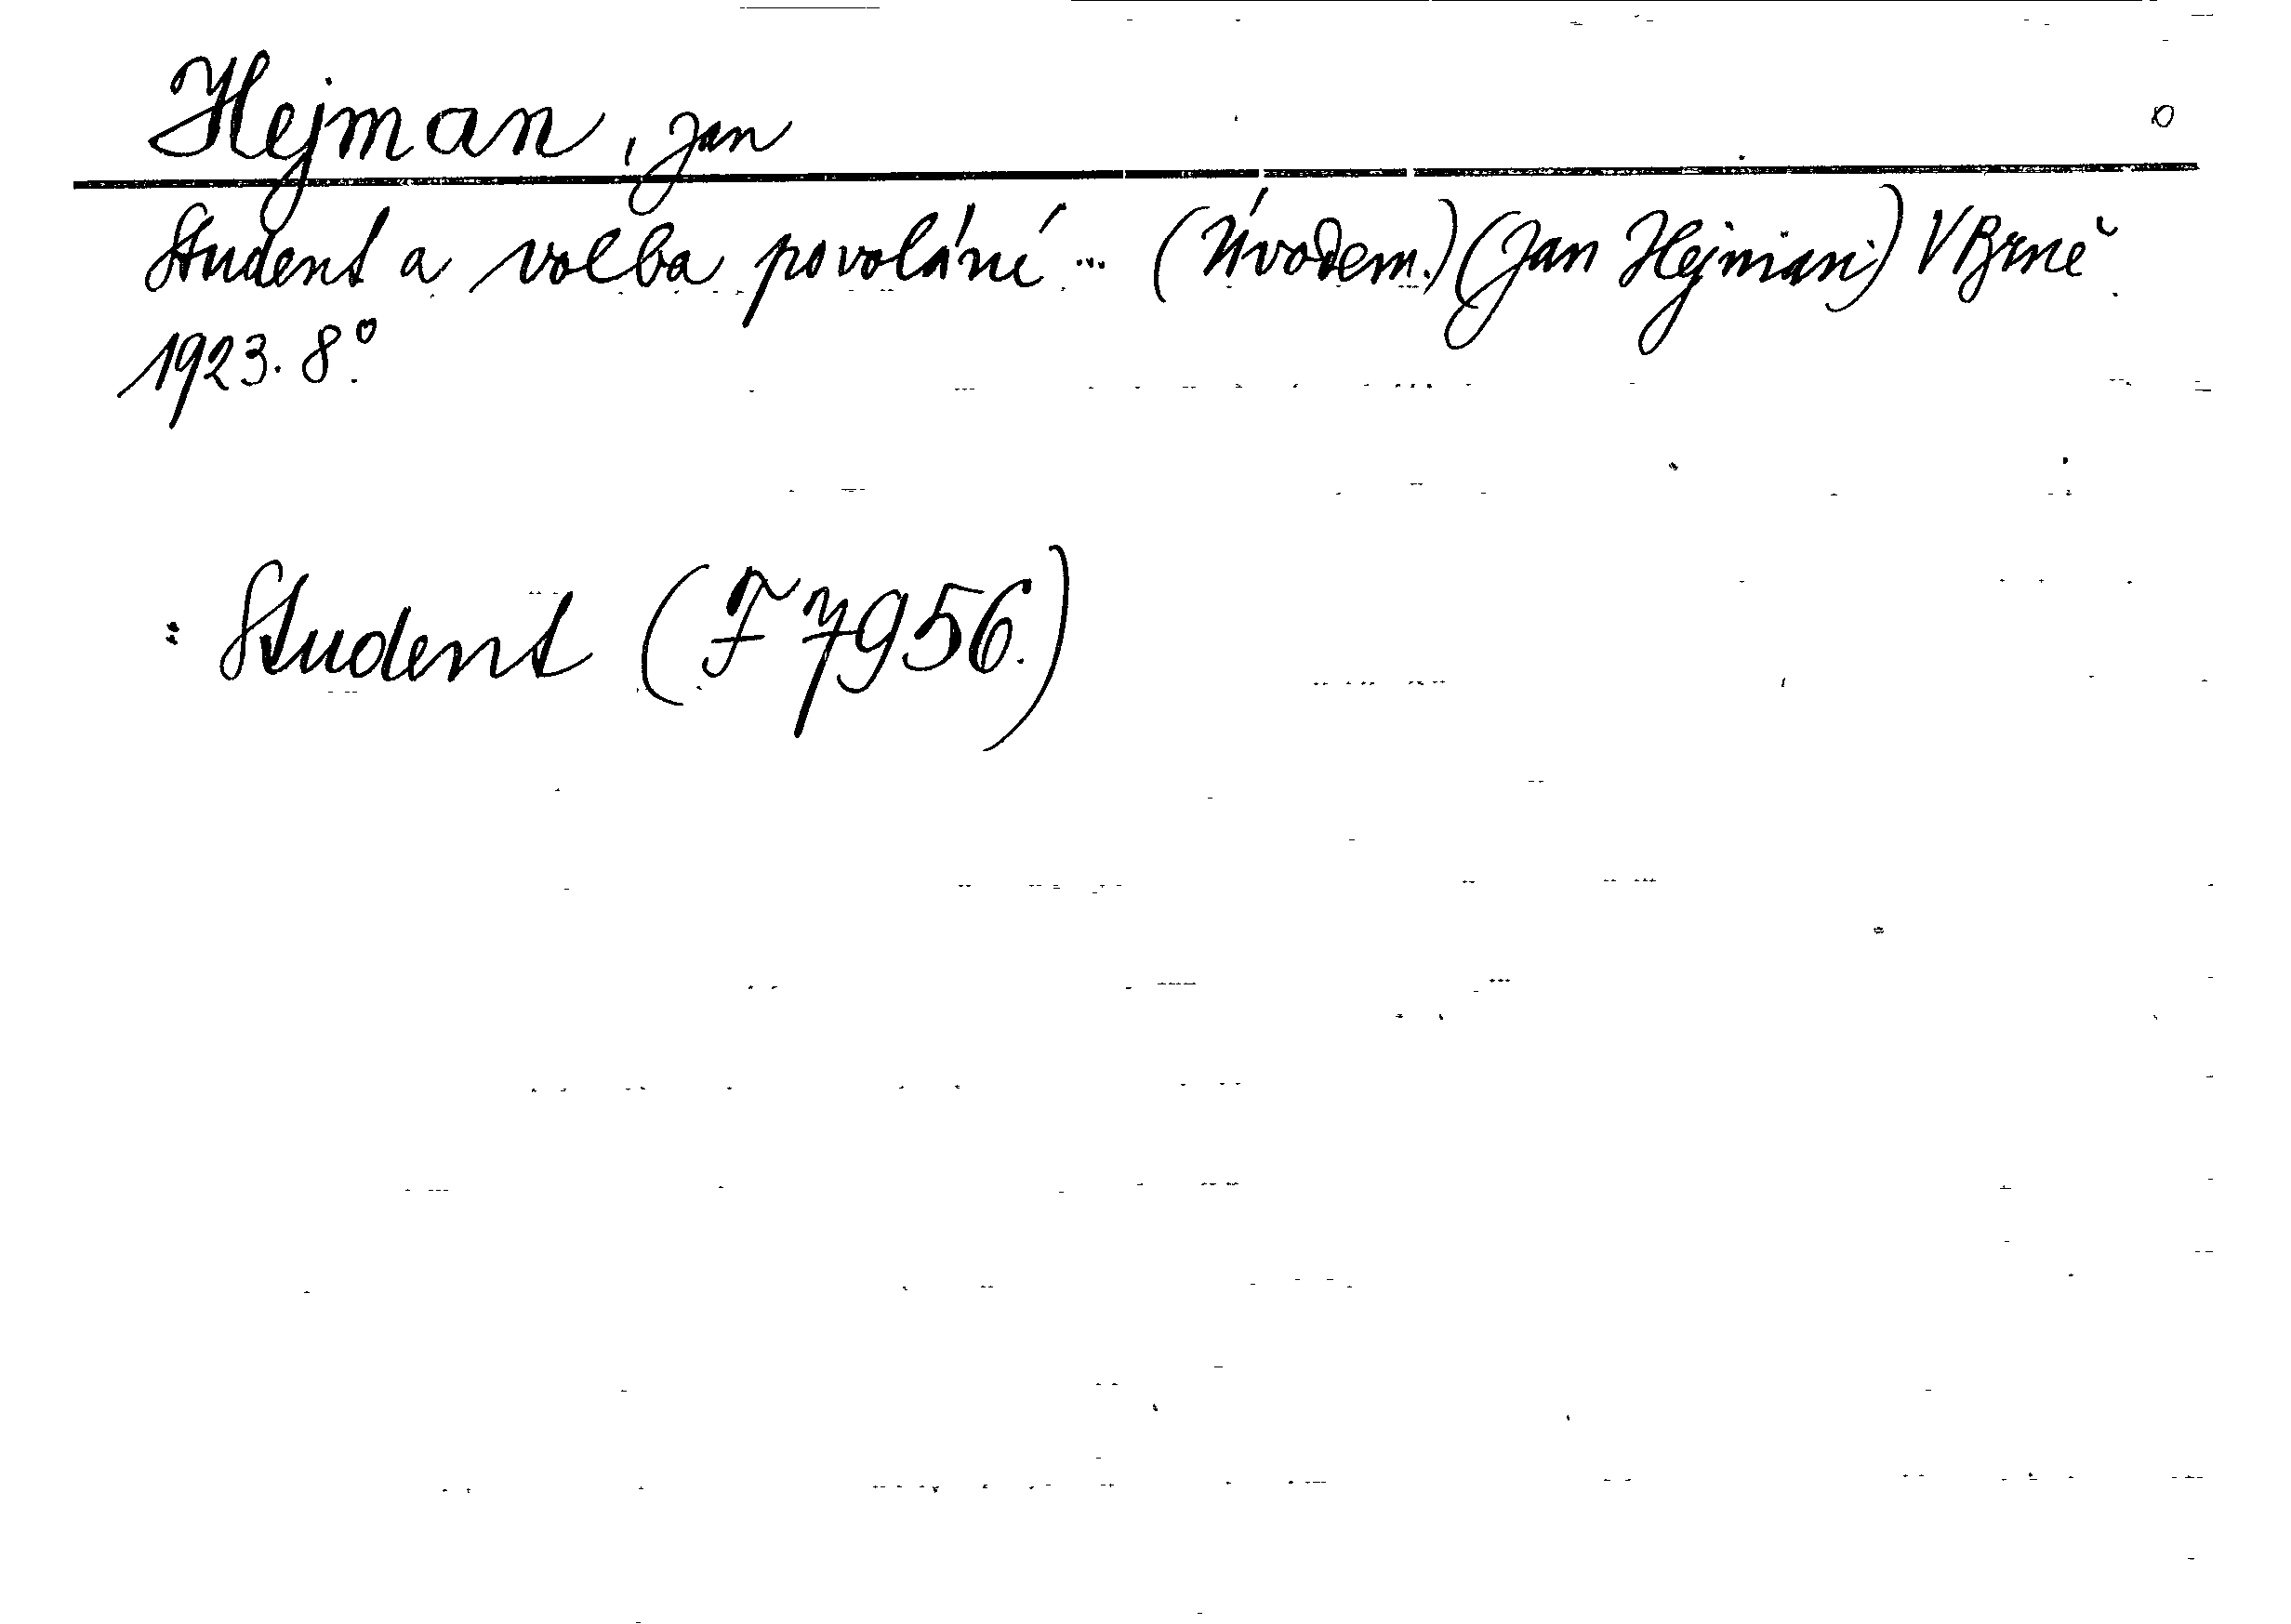 Hejman, Jan
Student a volba povolání ... (Úvodem.) (Jan Hejman) V Brně
1923. 8°.
: Student (F 7956.)